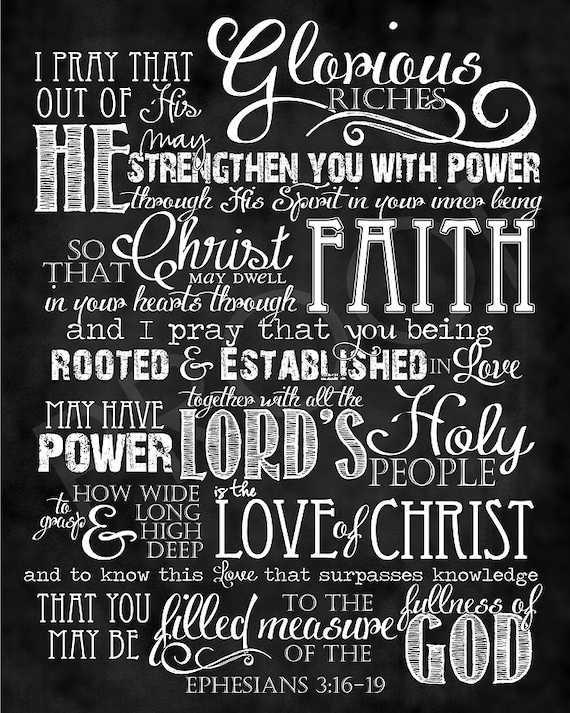 I PRAY THAT
OUT OF His Glorious
RICHES
HE may
STRENGTHEN YOU WITH POWER
through His Spirit in your inner being
SO
THAT Christ
MAY DWELL
in your hearts through FAITH
and I pray that you being
ROOTED & ESTABLISHED IN Love
MAY HAVE
POWER
together with all the
LORD'S Holy
PEOPLE
to
grasp HOW WIDE
& LONG
HIGH
DEEP
is the
LOVE of CHRIST
and to know this Love that surpasses knowledge
THAT YOU
MAY BE filled TO THE
measure
OF THE
fullness of
GOD
EPHESIANS 3:16-19